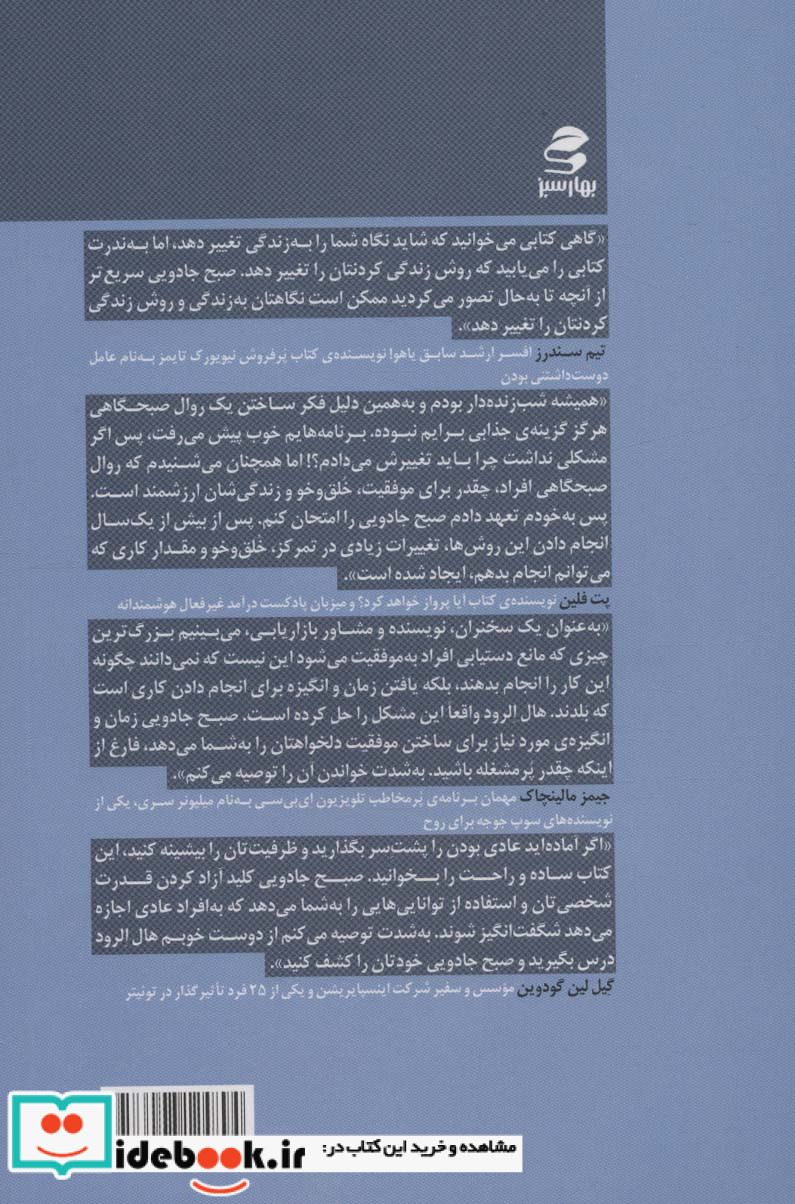 بهار سبز
«گاهی کتابی می‌خوانید که شاید نگاه شما را به‌زندگی تغییر دهد، اما به‌ندرت
کتابی را می‌یابید که روش زندگی کردنتان را تغییر دهد. صبح جادویی سریع‌تر
از آنچه تا به‌حال تصور می‌کردید ممکن است نگاهتان به‌زندگی و روش زندگی
کردنتان را تغییر دهد».
تیم سندرز افسر ارشد سابق یاهو! نویسنده‌ی کتاب پُرفروش نیویورک تایمز به‌نام عامل
دوست‌داشتنی بودن
«همیشه شب‌زنده‌دار بودم و به‌همین دلیل فکر ساختن یک روال صبحگاهی
هرگز گزینه‌ی جذابی برایم نبوده. برنامه‌هایم خوب پیش می‌رفت، پس اگر
مشکلی نداشت چرا باید تغییرش می‌دادم؟! اما همچنان می‌شنیدم که روال
صبحگاهی افراد، چقدر برای موفقیت، خلق‌وخو و زندگی‌شان ارزشمند است.
پس به‌خودم تعهد دادم صبح جادویی را امتحان کنم. پس از بیش از یک‌سال
انجام دادن این روش‌ها، تغییرات زیادی در تمرکز، خُلق‌وخو و مقدار کاری که
می‌توانم انجام بدهم، ایجاد شده است».
پت فلین نویسنده‌ی کتاب آیا پرواز خواهد کرد؟ و میزبان پادکست درآمد غیرفعال هوشمندانه
«به‌عنوان یک سخنران، نویسنده و مشاور بازاریابی، می‌بینیم بزرگ‌ترین
چیزی که مانع دستیابی افراد به‌موفقیت می‌شود این نیست که نمی‌دانند چگونه
این کار را انجام بدهند، بلکه یافتن زمان و انگیزه برای انجام دادن کاری است
که بلدند. هال الرود واقعاً این مشکل را حل کرده است. صبح جادویی زمان و
انگیزه‌ی مورد نیاز برای ساختن موفقیت دلخواهتان را به‌شما می‌دهد، فارغ از
اینکه چقدر پُرمشغله باشید. به‌شدت خواندن آن را توصیه می‌کنم».
جیمز مالینچاک مهمان برنامه‌ی پُرمخاطب تلویزیون ای‌بی‌سی به‌نام میلیونر سری، یکی از
نویسنده‌های سوپ جوجه برای روح
«اگر آماده‌اید عادی بودن را پشت‌سر بگذارید و ظرفیت‌تان را بیشینه کنید، این
کتاب ساده و راحت را بخوانید. صبح جادویی کلید آزاد کردن قدرت
شخصی‌تان و استفاده از توانایی‌هایی را به‌شما می‌دهد که به‌افراد عادی اجازه
می‌دهد شگفت‌انگیز شوند. به‌شدت توصیه می‌کنم از دوست خوبم هال الرود
درس بگیرید و صبح جادویی خودتان را کشف کنید».
گیل لین گودوین مؤسس و سفیر شرکت اینسپایریشن و یکی از ۲۵ فرد تأثیرگذار در توئیتر
مشاهده و خرید این کتاب در:
idebook.ir